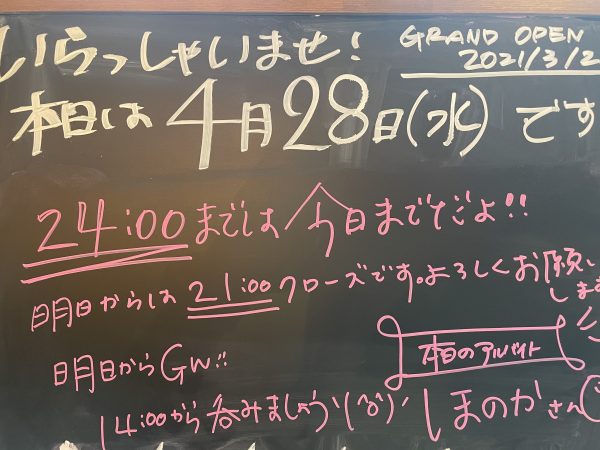 いらっしゃいませ!
GRAND OPEN
2021/3/2
本日は4月28日(水)です
24:00までは今日までだよ!!
明日からは21:00クローズです。よろしくお願いします
明日からGW!!
本日のアルバイト
14:00から呑みましょう'(^^)'
しまのかさん